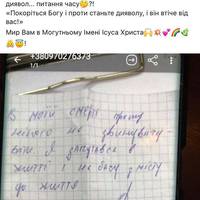 диявол... питання часу🤔?!
«Покоріться Богу і проти станьте дияволу, і він втіче від вас!»
Мир Вам в Могутньому Імені Ісуса Христа🙌💥💕🌈🕊
🙏😇!
+380970276373
1/1
В моїй смерті прошу
нікого не звинувачу-
вати Я заплутався в
житті і не бачу змісту
до життя